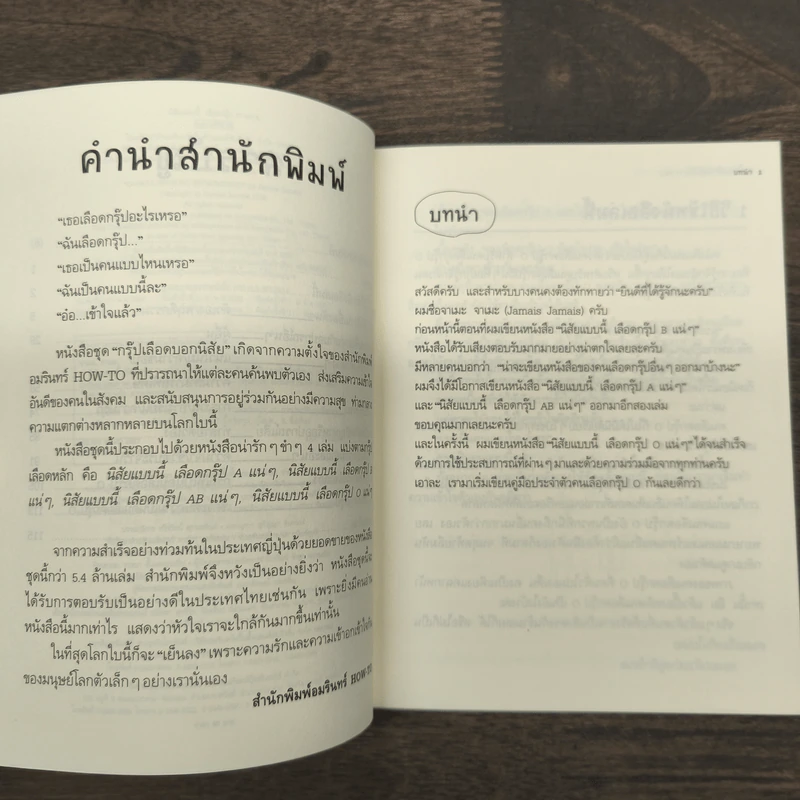 คำนำสำนักพิมพ์
“เธอเลือดกรุ๊ปอะไรเหรอ”
“ฉันเลือดกรุ๊ป...”
“เธอเป็นคนแบบไหนเหรอ”
“ฉันเป็นคนแบบนี้ละ”
“อ๋อ...เข้าใจแล้ว”
หนังสือชุด “กรุ๊ปเลือดบอกนิสัย” เกิดจากความตั้งใจของสำนักพิมพ์
อมรินทร์ HOW-TO ที่ปรารถนาให้แต่ละคนค้นพบตัวเอง ส่งเสริมความเข้าใจ
อันดีของคนในสังคม และสนับสนุนการอยู่ร่วมกันอย่างมีความสุข ท่ามกลาง
ความแตกต่างหลากหลายบนโลกใบนี้
หนังสือชุดนี้ประกอบไปด้วยหนังสือน่ารัก ๆ ขำ ๆ 4 เล่ม แบ่งตามกรุ๊ป
เลือดหลัก คือ นิสัยแบบนี้ เลือดกรุ๊ป A แน่ ๆ, นิสัยแบบนี้ เลือดกรุ๊ป B
แน่ ๆ, นิสัยแบบนี้ เลือดกรุ๊ป AB แน่ ๆ, นิสัยแบบนี้ เลือดกรุ๊ป O แน่ ๆ
จากความสำเร็จอย่างท่วมท้นในประเทศญี่ปุ่นด้วยยอดขายของหนังสือ
ชุดนี้กว่า 5.4 ล้านเล่ม สำนักพิมพ์จึงหวังเป็นอย่างยิ่งว่า หนังสือชุดนี้จะ
ได้รับการตอบรับเป็นอย่างดีในประเทศไทยเช่นกัน เพราะยิ่งมีคนอ่าน
หนังสือนี้มากเท่าไร แสดงว่าหัวใจเราจะใกล้กันมากขึ้นเท่านั้น
ในที่สุดโลกใบนี้ก็จะ “เย็นลง” เพราะความรักและความเข้าอกเข้าใจกัน
ของมนุษย์โลกตัวเล็ก ๆ อย่างเรานั่นเอง
สำนักพิมพ์อมรินทร์ HOW-TO
บทนำ
บทนำ
สวัสดีครับ และสำหรับบางคนคงต้องทักทายว่า “ยินดีที่ได้รู้จักนะครับ”
ผมชื่อจาเมะ จาเมะ (Jamais Jamais) ครับ
ก่อนหน้านี้ตอนที่ผมเขียนหนังสือ “นิสัยแบบนี้ เลือดกรุ๊ป B แน่ ๆ”
หนังสือได้รับเสียงตอบรับมากมายอย่างน่าตกใจเลยละครับ
มีหลายคนบอกว่า “น่าจะเขียนหนังสือของคนเลือดกรุ๊ปอื่น ๆ ออกมาบ้างนะ”
ผมจึงได้มีโอกาสเขียนหนังสือ “นิสัยแบบนี้ เลือดกรุ๊ป A แน่ ๆ”
และ “นิสัยแบบนี้ เลือดกรุ๊ป AB แน่ ๆ” ออกมาอีกสองเล่ม
ขอบคุณมากเลยนะครับ
และในครั้งนี้ ผมเขียนหนังสือ “นิสัยแบบนี้ เลือดกรุ๊ป O แน่ ๆ” ได้จนสำเร็จ
ด้วยการใช้ประสบการณ์ที่ผ่าน ๆ มาและด้วยความร่วมมือจากทุกท่านครับ
เอาละ เรามาเริ่มเขียนคู่มือประจำตัวคนเลือดกรุ๊ป O กันเลยดีกว่า